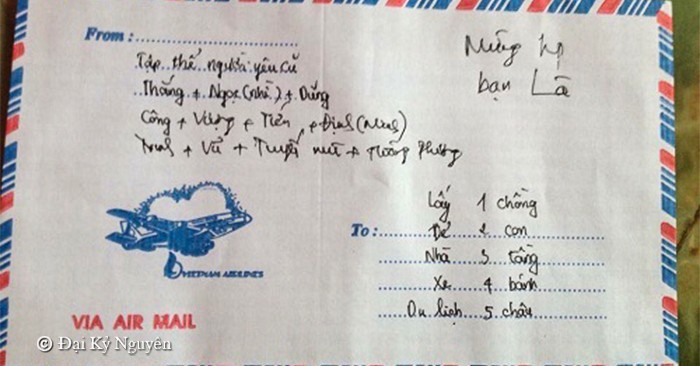 From:
Tập thể người yêu cũ
Thắng + Ngọc (nhà) + Dũng
Công + Vượng + Tiến + Định (Minh)
+ Vũ + Tuyết + Phương
Mừng
bạn Là
To:
Lấy 1 chồng
Đẻ 2 con
Nhà 3 tầng
Xe 4 bánh
Du lịch 5 châu
VIETNAM AIRLINES
VIA AIR MAIL
© Đại Kỷ Nguyên